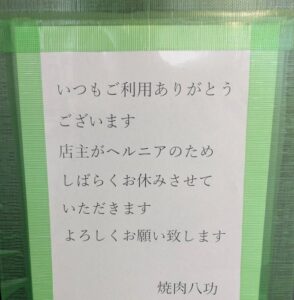 いつもご利用ありがとう
ございます
店主がヘルニアのため
しばらくお休みさせて
いただきます
よろしくお願い致します
焼肉八功